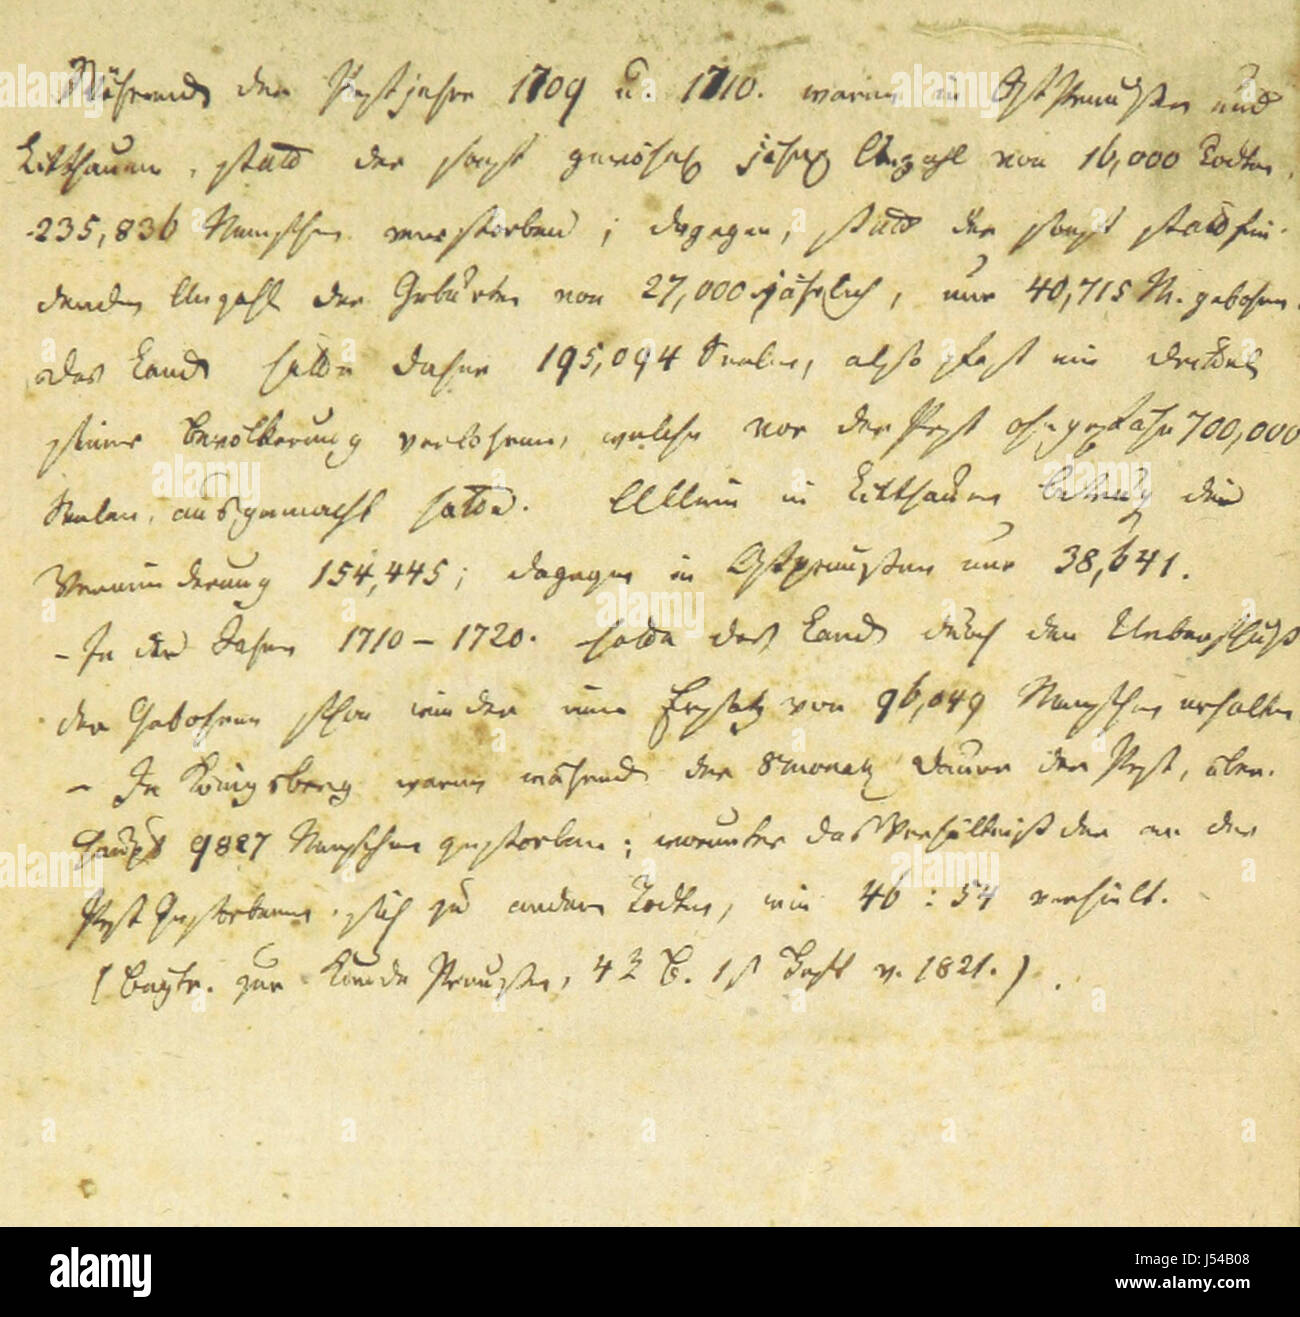 Während der Pestjahre 1709 u. 1710. waren in Ostpreußen und
Litthauen, statt der sonst gewöhnl. jährl. Anzahl von 16,000 Todten,
235,836 Menschen verstorben; dagegen, statt der sonst stattfin-
denden Anzahl der Geburten von 27,000 jährlich, nur 40,715 M. geboren.
Das Land hatte daher 195,094 Seelen, also fast ein Drittel
seiner Bevölkerung verlohren, welche vor der Pest ohngefähr 700,000
Seelen, ausgemacht hatte. Allein in Litthauen betrug die
Verminderung 154,445; dagegen in Ostpreußen nur 38,641.
- In den Jahren 1710 – 1720. hatte das Land durch den Ueberschuß
der Gebohrnen schon wieder einen Ersatz von 96,049 Menschen erhalten
- In Königsberg waren während der 8monatl. Dauer der Pest, über-
haupt 9827 Menschen gestorben; worunter das Verhältniß der an der
Pest Gestorbenen sich zu andern Todten, wie 46 : 54 verhielt.
(Beytr. zur Kunde Preußens, 4r B. 1s Heft v. 1821.)
alamy
J54B08
www.alamy.com